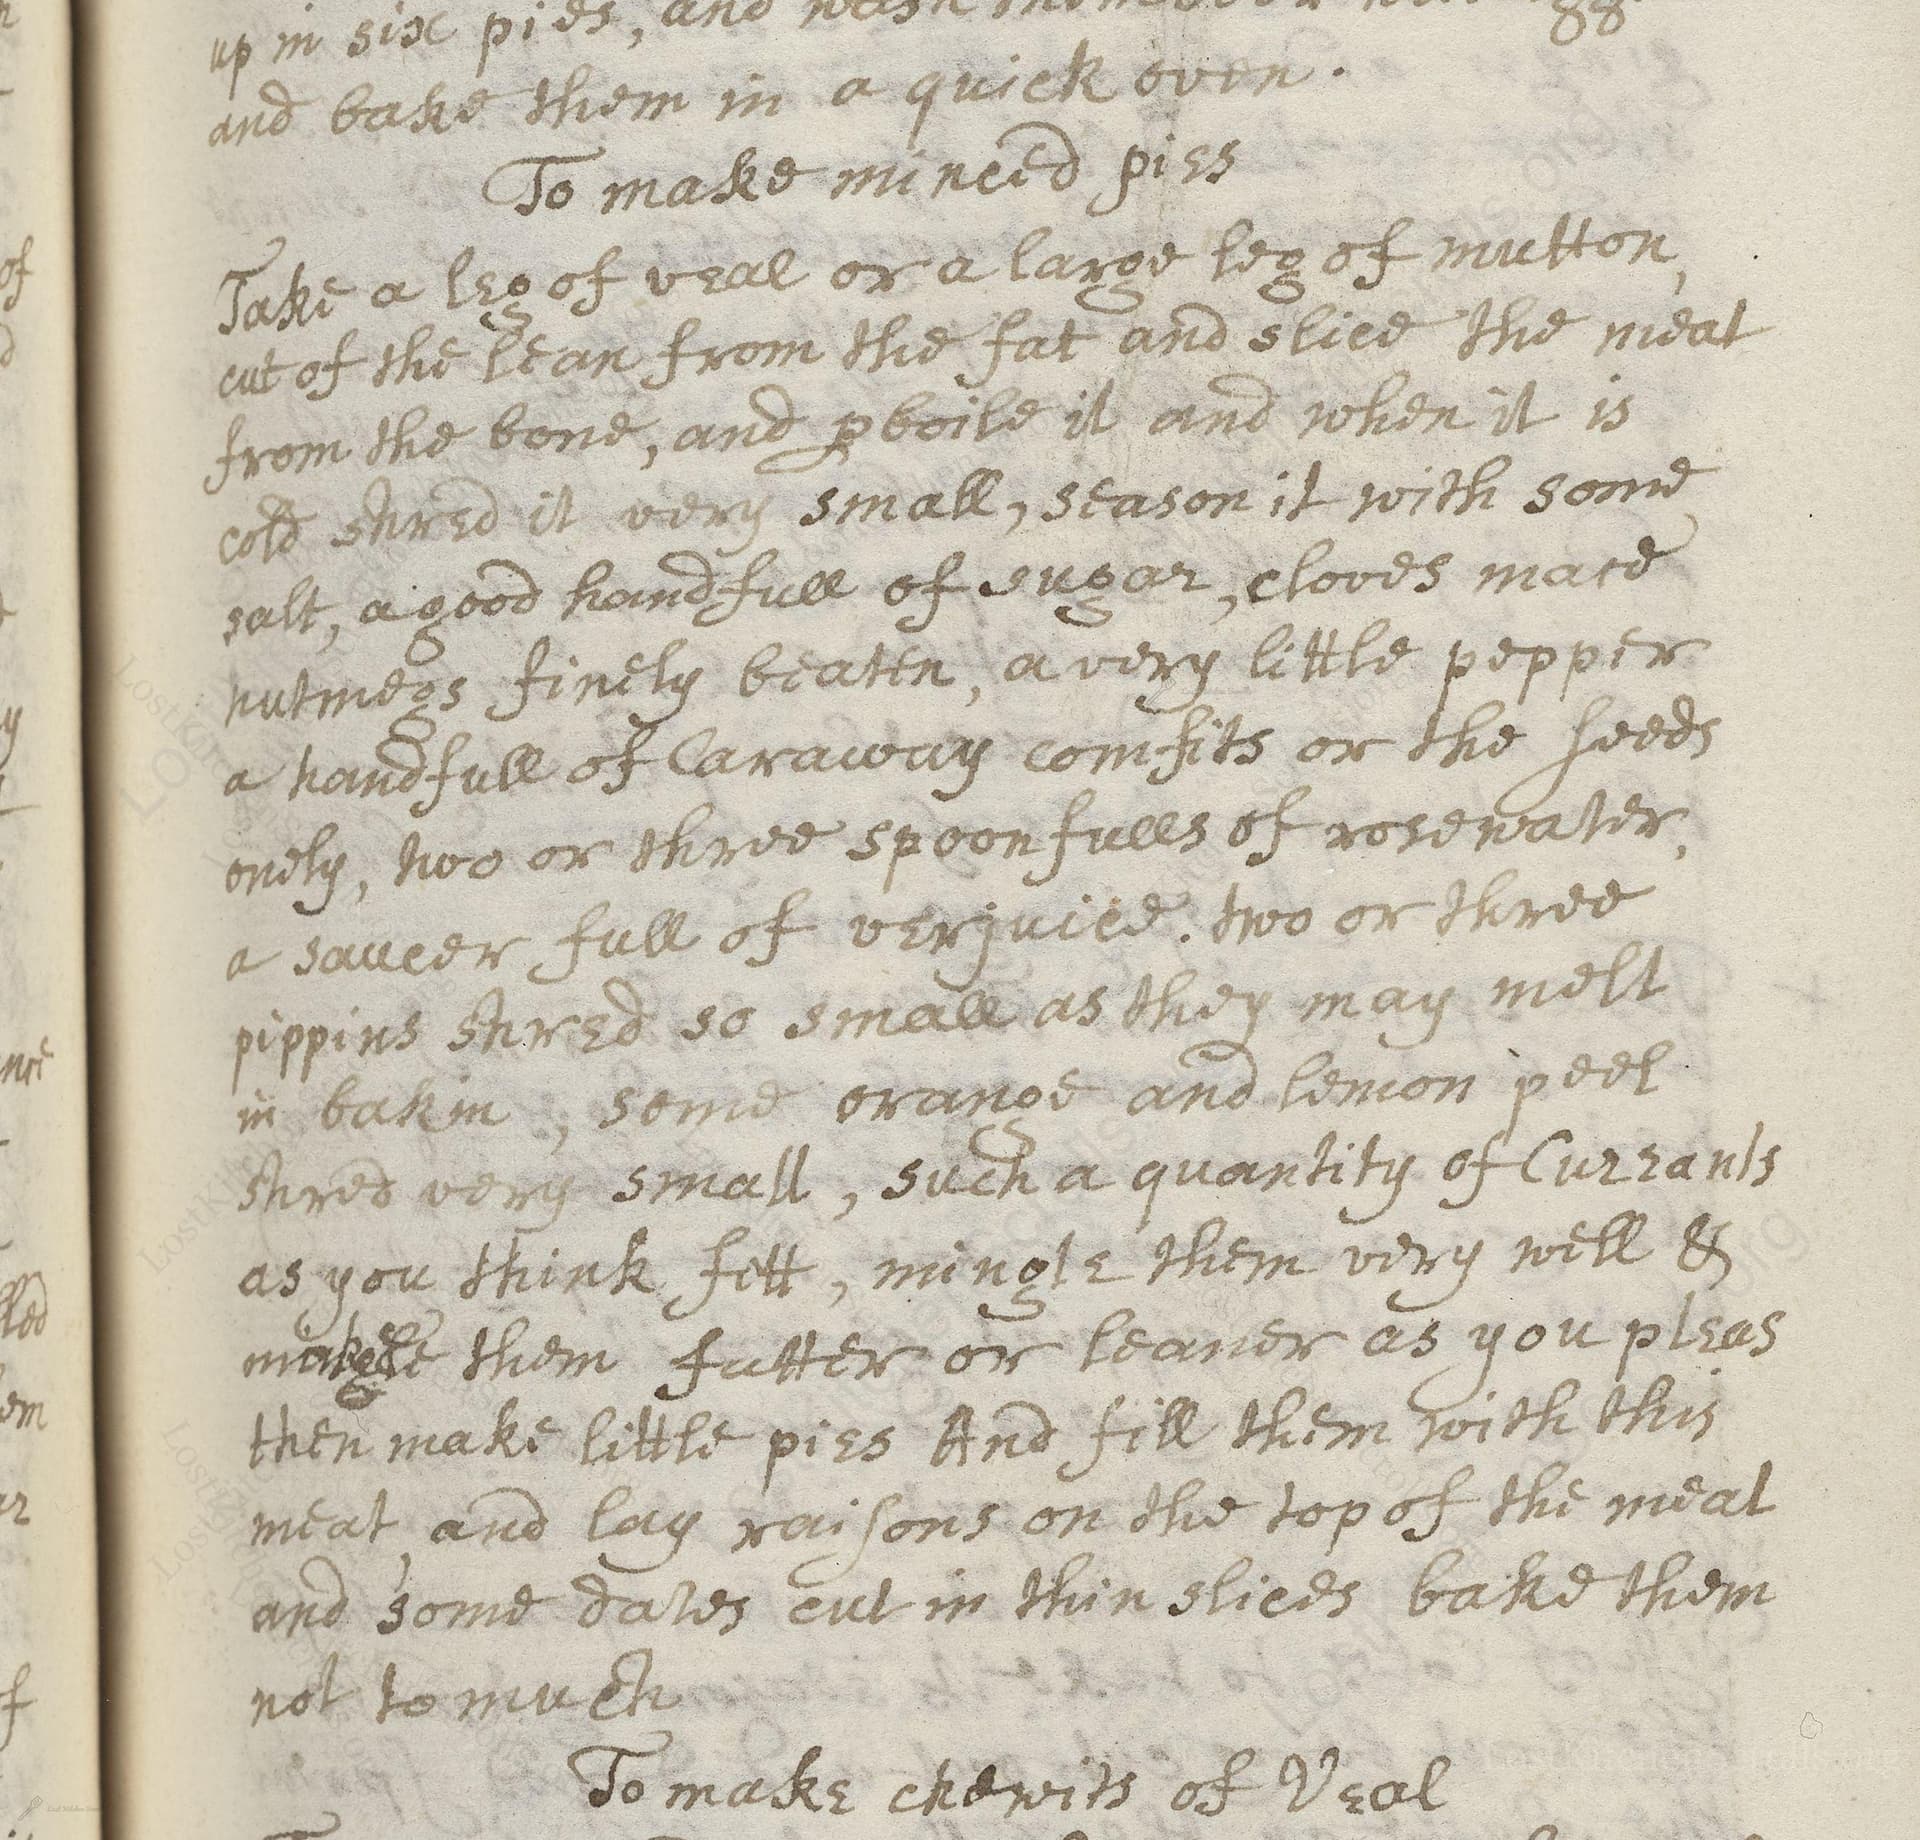 up in six pies, and wash them over
and bake them in a quick oven.
To make minced pies
Take a leg of veal or a large leg of mutton,
cut of the lean from the fat and slice the meat
from the bone, and pboile it and when it is
cold shred it very small, season it with some
salt, a good handfull of sugar, cloves mace
nutmegs finely beaten, a very little pepper
a handfull of Caraway comfits or the seeds
onely, two or three spoonfulls of rosewater,
a saucer full of verjuice. two or three
pippins shred so small as they may melt
in bakin, some orange and lemon peel
shred very small, such a quantity of Currants
as you think fitt, mingle them very well &
make them fatter or leaner as you pleas
then make little pies And fill them with this
meat, and lay raisons on the top of the meat
and some dates cut in thin slices bake them
not to much
To make chewits of Veal